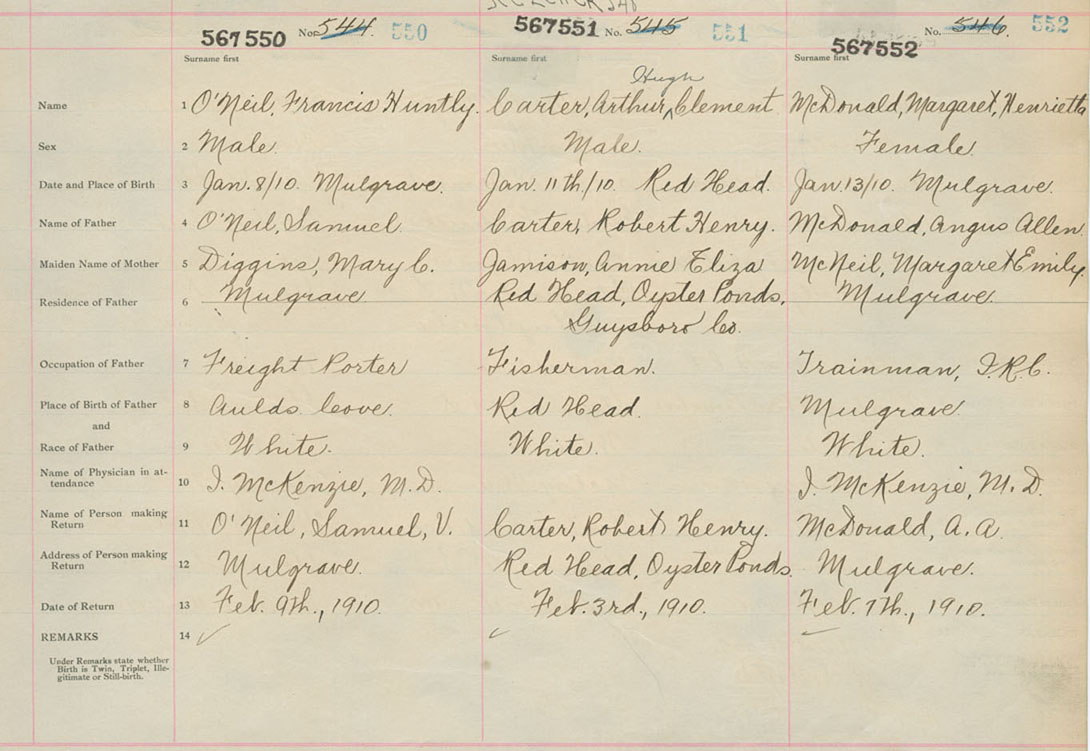 567550 No. 544. 550 567551 No. 545 551 567552 No. 546. 552
Surname first Surname first Surname first
Hugh
Name 1 O'Neil, Francis Huntly. Carter, Arthur, ‸Clement McDonald, Margaret, Henrietta
Sex 2 Male. Male. Female.
Date and Place of Birth 3 Jan. 8/10. Mulgrave. Jan. 11th/10. Red Head. Jan. 13/10. Mulgrave.
Name of Father 4 O'Neil, Samuel. Carter, Robert Henry. McDonald, Angus Allen.
Maiden Name of Mother 5 Diggins, Mary C. Jamison, Annie Eliza McNeil, Margaret Emily.
Residence of Father 6 Mulgrave. Red Head, Oyster Ponds, Mulgrave.
Guysboro Co.
Occupation of Father 7 Freight Porter Fisherman. Trainman, I.R.C.
Place of Birth of Father 8 Aulds Cove. Red Head. Mulgrave.
and
Race of Father 9 White. White. White.
Name of Physician in at-
tendance 10 I. McKenzie, M.D. I. McKenzie, M.D.
Name of Person making
Return 11 O'Neil, Samuel, V. Carter, Robert Henry. McDonald, A. A.
Address of Person making
Return 12 Mulgrave. Red Head, Oyster Ponds. Mulgrave.
Date of Return 13 Feb. 9th., 1910. Feb. 3rd., 1910. Feb. 7th., 1910.
REMARKS 14
Under Remarks state whether
Birth is Twin, Triplet, Ille-
gitimate or Still-birth.